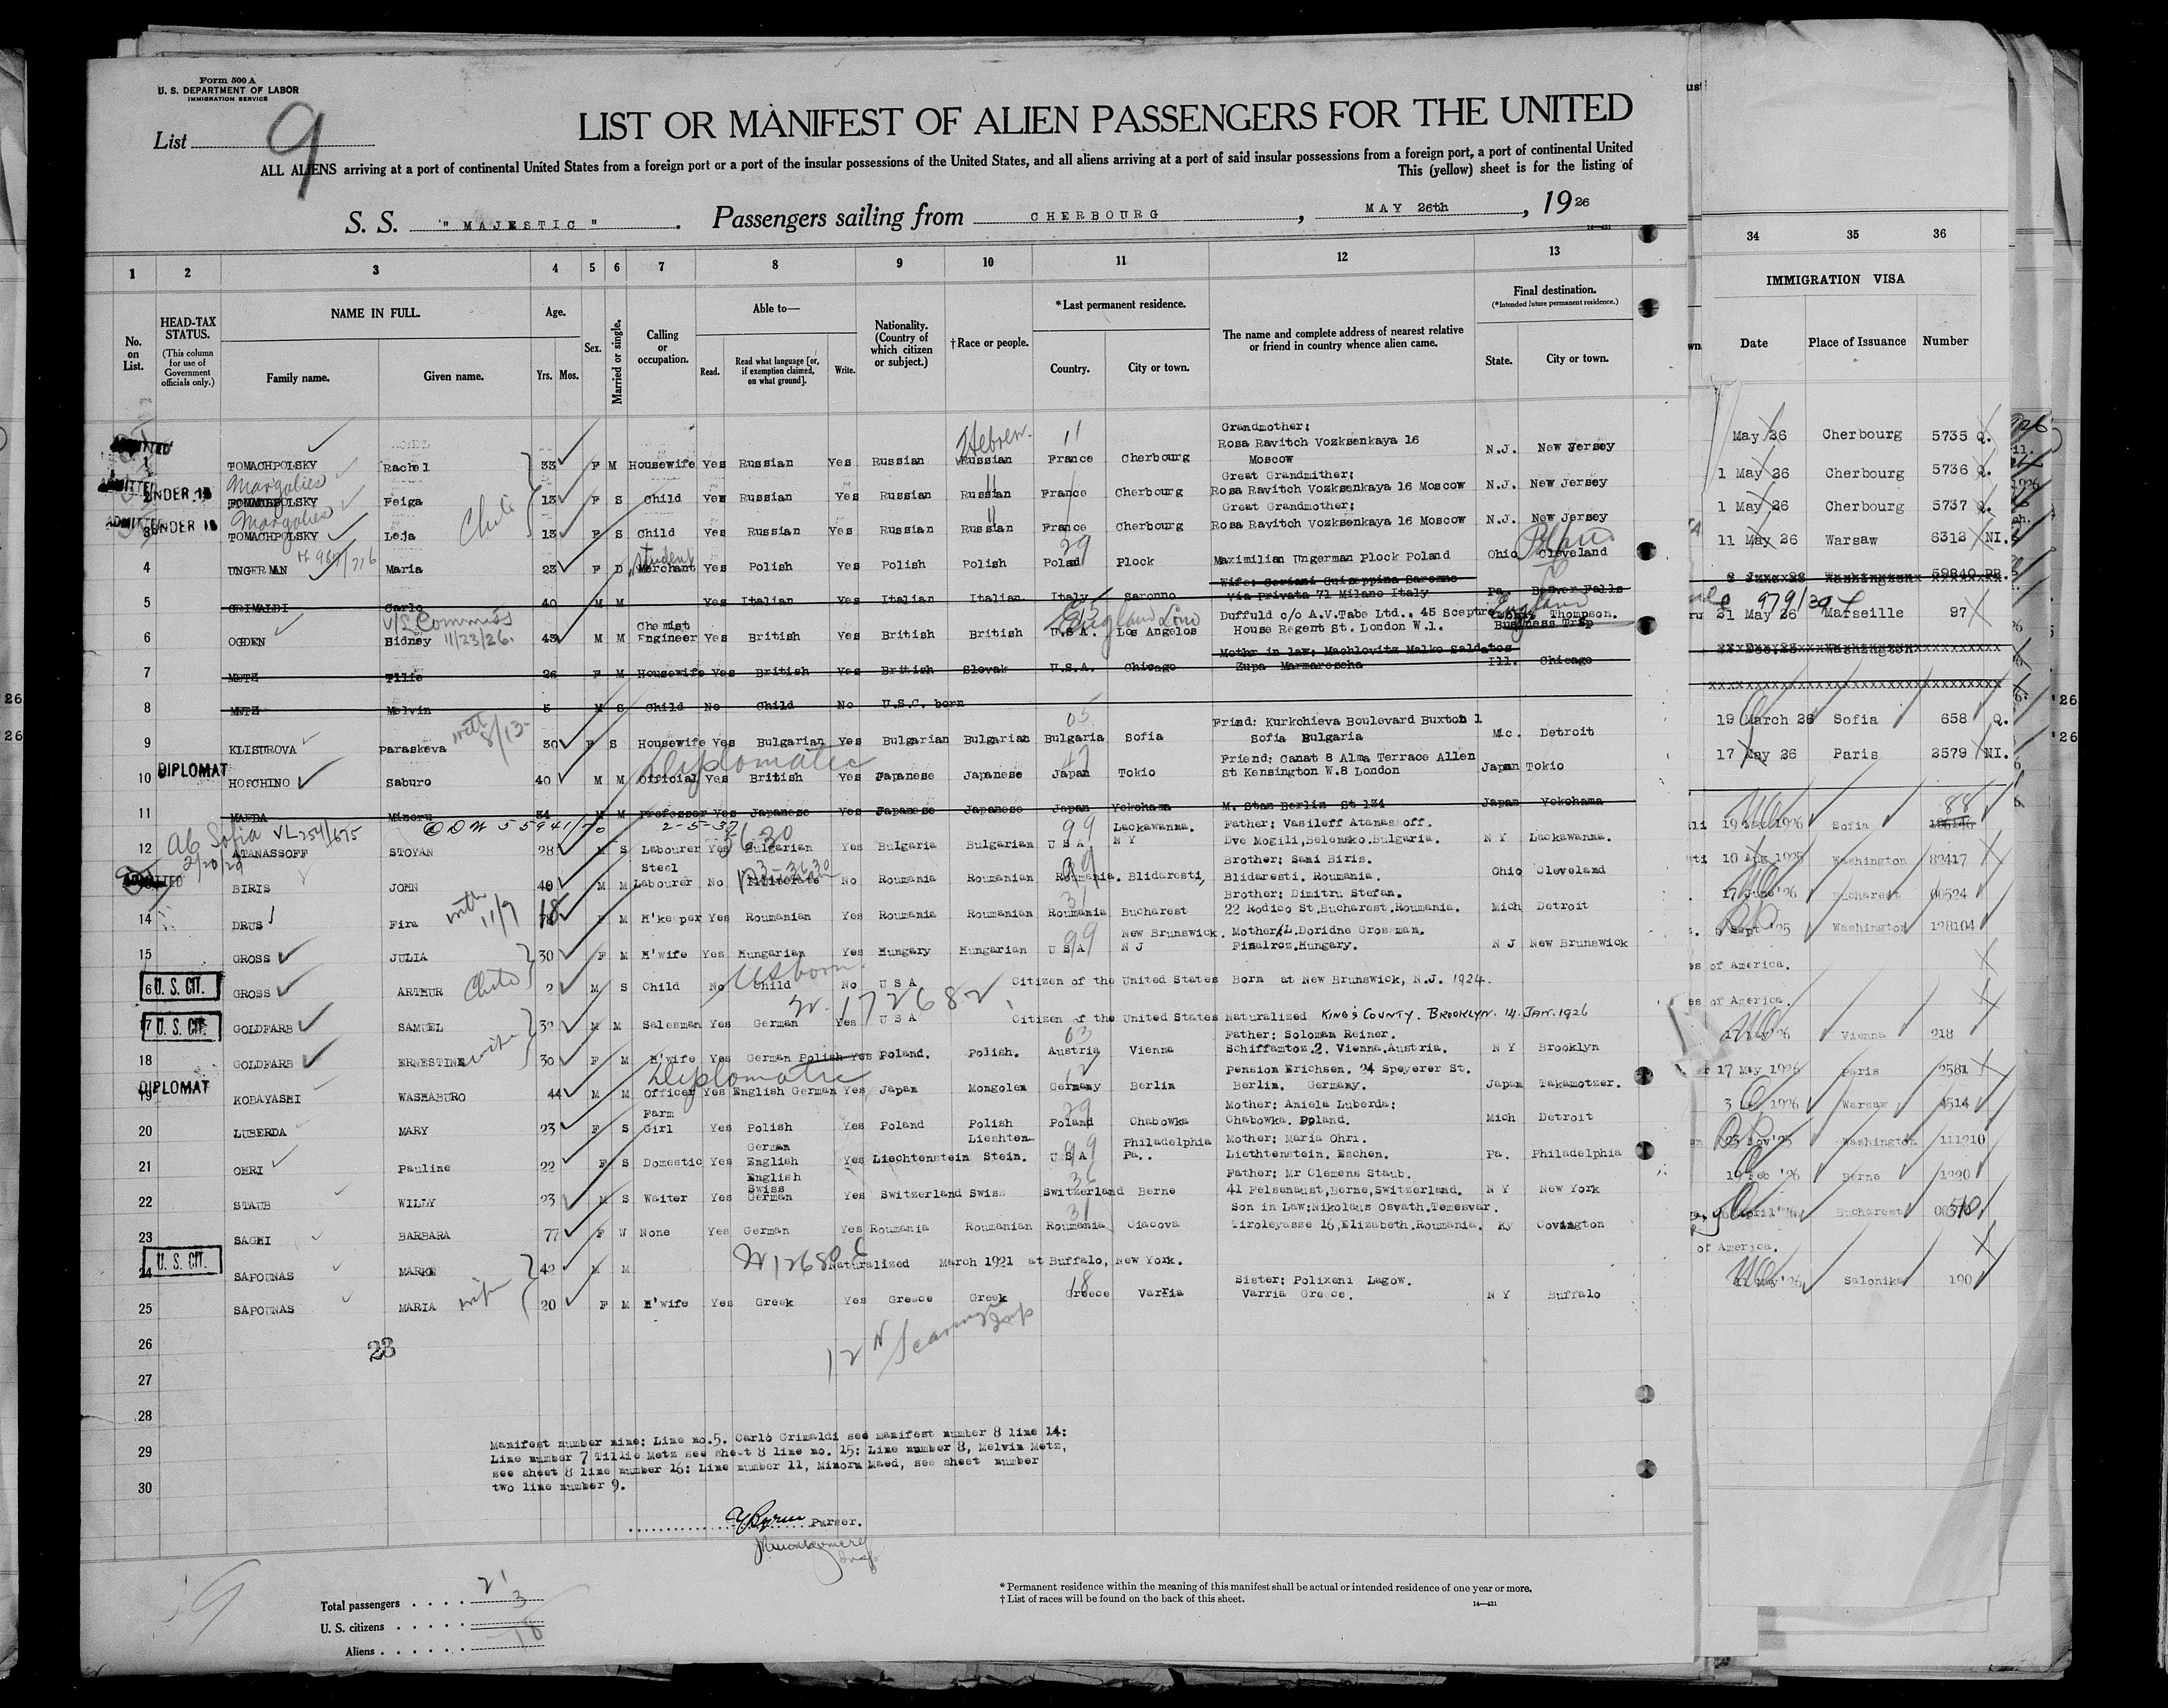 Form 500 A
U. S. DEPARTMENT OF LABOR
IMMIGRATION SERVICE
List 9
LIST OR MANIFEST OF ALIEN PASSENGERS FOR THE UNITED
ALL ALIENS arriving at a port of continental United States from a foreign port or a port of the insular possessions of the United States, and all aliens arriving at a port of said insular possessions from a foreign port, a port of continental United
This (yellow) sheet is for the listing of
S. S. "MAJESTIC". Passengers sailing from CHERBOURG, MAY 26th, 1926
1 2 3 4 5 6 7 8 9 10 11 12 13 34 35 36
No. on List.
HEAD-TAX STATUS. (This column for use of Government officials only.)
NAME IN FULL. Family name. Given name.
Age. Yrs. Mos.
Sex.
Married or single.
Calling or occupation.
Able to— Read. Read what language [or, if exemption claimed, on what ground]. Write.
Nationality. (Country of which citizen or subject.)
†Race or people.
*Last permanent residence. Country. City or town.
The name and complete address of nearest relative or friend in country whence alien came.
Final destination. (*Intended future permanent residence.) State. City or town.
IMMIGRATION VISA
Date Place of Issuance Number
Hebrew. 11 Grandmother;
Rosa Ravitch Vozksenkaya 16
1 TOMACHPOLSKY Rachel 33 F M Housewife Yes Russian Yes Russian Russian France Cherbourg Moscow N.J. New Jersey May 26 Cherbourg 5735 Q.
Margolies Great Grandmither;
ADMITTED UNDER 16 TOMACHPOLSKY Feiga 13 F S Child Yes Russian Yes Russian Russian France Cherbourg Rosa Ravitch Vozksenkaya 16 Moscow N.J. New Jersey 1 May 26 Cherbourg 5736 Q.
Margolies Child Great Grandmother;
ADMITTED UNDER 16 TOMACHPOLSKY Leja 13 F S Child Yes Russian Yes Russian Russian France Cherbourg Rosa Ravitch Vozksenkaya 16 Moscow N.J. New Jersey 1 May 26 Cherbourg 5737 Q.
Student 29 Poland
4 UNGERMAN Maria 23 F D Merchant Yes Polish Yes Polish Polish Poland Plock Maximilian Ungerman Plock Poland Ohio Cleveland 11 May 26 Warsaw 6312 NI.
5 GRIMALDI Carlo 40 M M Yes Italian Yes Italian Italian Italy Saronno Via Privata 71 Milano Italy Pa. Beaver Falls Washington 59840 PR.
V/S Commiss England Lond Duffuld c/o A.V.Tabe Ltd., 45 Sceptre England Thompson.
6 OGDEN Sidney 11/23/26. 43 M M Chemist Engineer Yes British Yes British British U.S.A. Los Angelos House Regent St. London W.1. Business Trip 21 May 26 Marseille 97
Mothr in law; Machlovitz Malko Saldates
7 METZ Tllie 26 F M Housewife Yes British Yes British Slovak U.S.A. Chicago Zupa Marmaroscha Ill. Chicago
8 METZ Melvin 5 M S Child No Child No U.S.C. born
05 Frind: Kurkchieva Boulevard Buxton 1
9 KLISUROVA Paraskeva 30 F S Housewife Yes Bulgarian Yes Bulgarian Bulgarian Bulgaria Sofia Sofia Bulgaria Mc. Detroit 19 March 26 Sofia 658 Q.
Diplomatic Friend; Canat 8 Alma Terrace Allen
DIPLOMAT 10 HOSCHINO Saburo 40 M M Official Yes British Yes Japanese Japanese Japan Tokio St Kensington W.8 London Japan Tokio 17 May 26 Paris 2579 NI.
11 MAEDA Minoru 34 M M Professor Yes Japanese Yes Japanese Japanese Japan Yokohama M. Stan Berlin St 134 Japan Yokohama
2-5-37 99 Lackawanna. Father; Vasileff Atanassoff. 88
12 ATANASSOFF STOYAN 28 M S Labourer Yes Bulgarian Yes Bulgaria Bulgarian U S A N Y Dve Mogili,Belensko.Bulgaria. N Y Lackawanna. Sofia
Steel Brother; Sani Biris.
BIRIS JOHN 49 M M Labourer No Illiterate No Roumania Roumanian Roumania. Blidaresti, Blidaresti. Roumania. Ohio Cleveland Washington 82417
Brother; Dimitru Stefan.
14 DRUS Fira 18 F M H'keeper Yes Roumanian Yes Roumania Roumanian Roumania Bucharest 22 Rodico St.Bucharest.Roumania. Mich Detroit 17 June'26 Bucharest 00524
99 New Brunswick. Mother/L.Doridne Grossman.
15 GROSS JULIA 30 F M H'wife Yes Hungarian Yes Hungary Hungarian U S A N J Finalroz.Hungary. N J New Brunswick Sept '25 Washington 128104
US born
U. S. CIT. GROSS ARTHUR Child 2 M S Child No Child No U S A Citizen of the United States Born at New Brunswick, N.J. 1924. of America.
U. S. CIT. GOLDFARB SAMUEL 32 M M Salesman Yes German Yes U S A Citizen of the United States Naturalized KING'S COUNTY. BROOKLYN. 14. JAN. 1926 of America.
03 Father; Soloman Reiner.
18 GOLDFARB ERNESTINE wife 30 F M H'wife Yes German Polish Yes Poland. Polish. Austria Vienna Schiffamtoz.2. Vienna.Austria. N Y Brooklyn 17 May'26 Vienna 218
Diplomatic Pension Erichsen. 24 Speyerer St.
DIPLOMAT 19 KOBAYASHI WASHABURO 44 M M Officer Yes English German Yes Japan Mongolen Germany Berlin Berlin. Germany. Japan Takamotzer. 17 May 1926 Paris 2581
Farm 29 Mother; Aniela Luberda;
20 LUBERDA MARY 23 F S Girl Yes Polish Yes Poland Polish Poland Chabowka Chabowka. Poland. Mich Detroit 1926 Warsaw 4514
German Liechten- 99 Philadelphia Mother; Maria Ohri.
21 OHRI Pauline 22 F S Domestic Yes English Yes Liechtenstein Stein. U S A Pa.. Liethtenstein. Eschen. Pa. Philadelphia 23 Nov'25 Washington 111210
English Swiss 36 Father; Mr Clemens Staub.
22 STAUB WILLY 23 M S Waiter Yes German Yes Switzerland Swiss Switzerland Berne 41 Felsenaust,Berne,Switzerland. N Y New York 19 Feb '26 Berne 1220
Son in Law;Nikolaus Osvath.Temesvar.
23 SAGHI BARBARA 77 F W None Yes German Yes Roumania Roumanian Roumania Ciacova Tiroleyasse 16,Elizabeth.Roumania. Ky Covington Bucharest
U. S. CIT. 24 SAPOUNAS MARKE 42 M M Naturalized March 1921 at Buffalo, New York. of America.
18 Sister; Polixeni Lagow.
25 SAPOUNAS MARIA wife 20 F M H'wife Yes Greek Yes Greece Greek Greece Varria Varria Greece. N Y Buffalo 11 May'26 Salonika 190
26
23
27
28
29
30
Manifest number nine: Line no.5. Carlo Grimaldi see manifest number 8 line 14:
Line number 7 Tillie Metz see sheet 8 line no. 15: Line number 8, Melvin Metz,
see sheet 8 line number 16: Line number 11, Minoru Maed, see sheet number
two line number 9.
Purser.
Total passengers . . . . 21
U. S. citizens . . . . . 3
Aliens . . . . . . . 18
* Permanent residence within the meaning of this manifest shall be actual or intended residence of one year or more.
† List of races will be found on the back of this sheet.
14—431